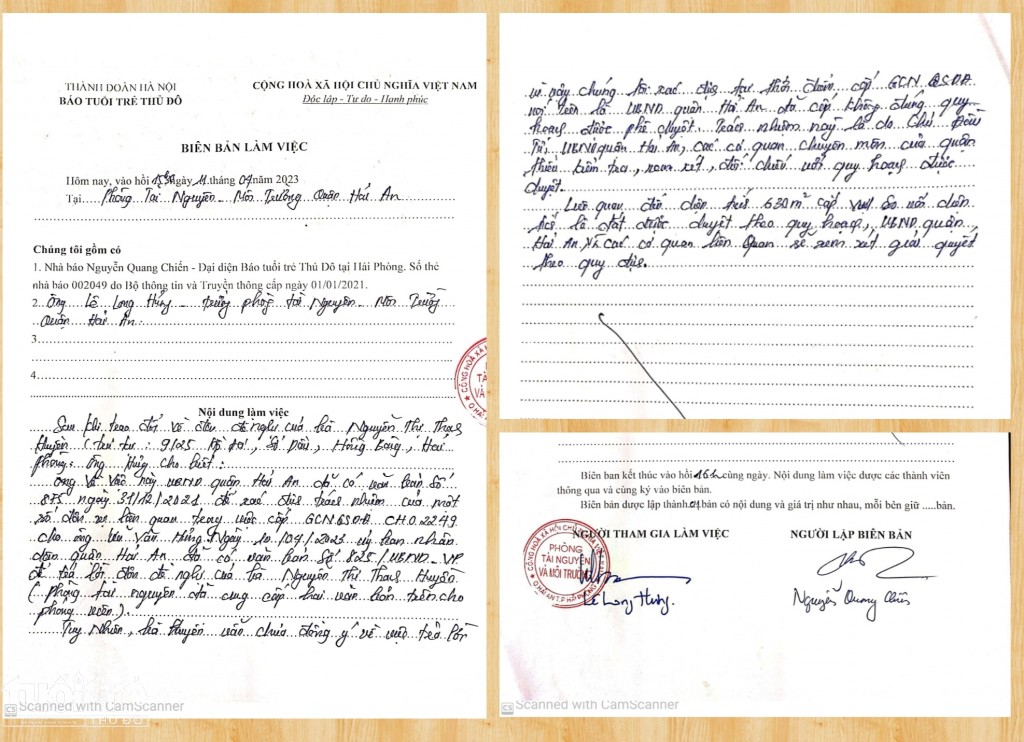 THÀNH ĐOÀN HÀ NỘI
BÁO TUỔI TRẺ THỦ ĐÔ
CỘNG HOÀ XÃ HỘI CHỦ NGHĨA VIỆT NAM
Độc lập - Tự do - Hạnh phúc
BIÊN BẢN LÀM VIỆC
Hôm nay, vào hồi ngày 11 tháng 04 năm 2023
Tại Phòng Tài Nguyên Môi Trường Quận Hải An
Chúng tôi gồm có
1. Nhà báo Nguyễn Quang Chiến - Đại diện Báo tuổi trẻ Thủ Đô tại Hải Phòng. Số thẻ
nhà báo 002049 do Bộ thông tin và Truyền thông cấp ngày 01/01/2021.
2. Ông Lê Long Hưng trưởng phòng tài Nguyên Môi Trường
Quận Hải An.
3.
4.
Nội dung làm việc
Sau khi trao đổi về đơn đề nghị của bà Nguyễn Thị Thanh
Huyền (trú tại: 9/25 Sở Dầu, Hồng Bàng, Hải
Phòng. Ông Hưng cho biết:
việc này UBND quận Hải An đã có văn bản số
875 ngày 31/12/2021 để xác định trách nhiệm của một
số đơn vị liên quan trong việc cấp GCN QSDĐ CH02249
cho ông Văn Hùng Ngày 10/04/2023 Uỷ ban nhân
dân quận Hải An đã có văn bản số 825/UBND-VP
để trả lời đơn đề nghị của bà Nguyễn Thị Thanh Huyền
(phòng tài nguyên đã cung cấp hai văn bản trên cho
phóng viên).
Tuy Nhiên, bà Huyền vẫn chưa đồng ý về việc trả lời
CS Scanned with CamScanner
vì vậy chúng tôi xác định tại thời điểm cấp GCN QSDĐ
nói trên là UBND quận Hải An đã cấp không đúng quy
hoạch được phê duyệt. Trách nhiệm này là do Chủ đầu
Tư, UBND quận Hải An, các cơ quan chuyên môn của quận
thiếu kiểm tra, xem xét, đối chiếu với quy hoạch được
duyệt.
Liên quan đến diện tích 630m² cấp vượt so với diện
tích lô đất được duyệt theo quy hoạch, UBND quận
Hải An và các cơ quan liên quan sẽ xem xét giải quyết
theo quy định.
Biên bản kết thúc vào hồi 16h cùng ngày. Nội dung làm việc được các thành viên
thông qua và cùng ký vào biên bản.
Biên bản được lập thành 01 bản có nội dung và giá trị như nhau, mỗi bên giữ .....bản.
NGƯỜI THAM GIA LÀM VIỆC
NGƯỜI LẬP BIÊN BẢN
PHÒNG
TÀI NGUYÊN
VÀ MÔI TRƯỜNG
Lê Long Hưng.
Nguyễn Quang Chiến
CS Scanned with CamScanner